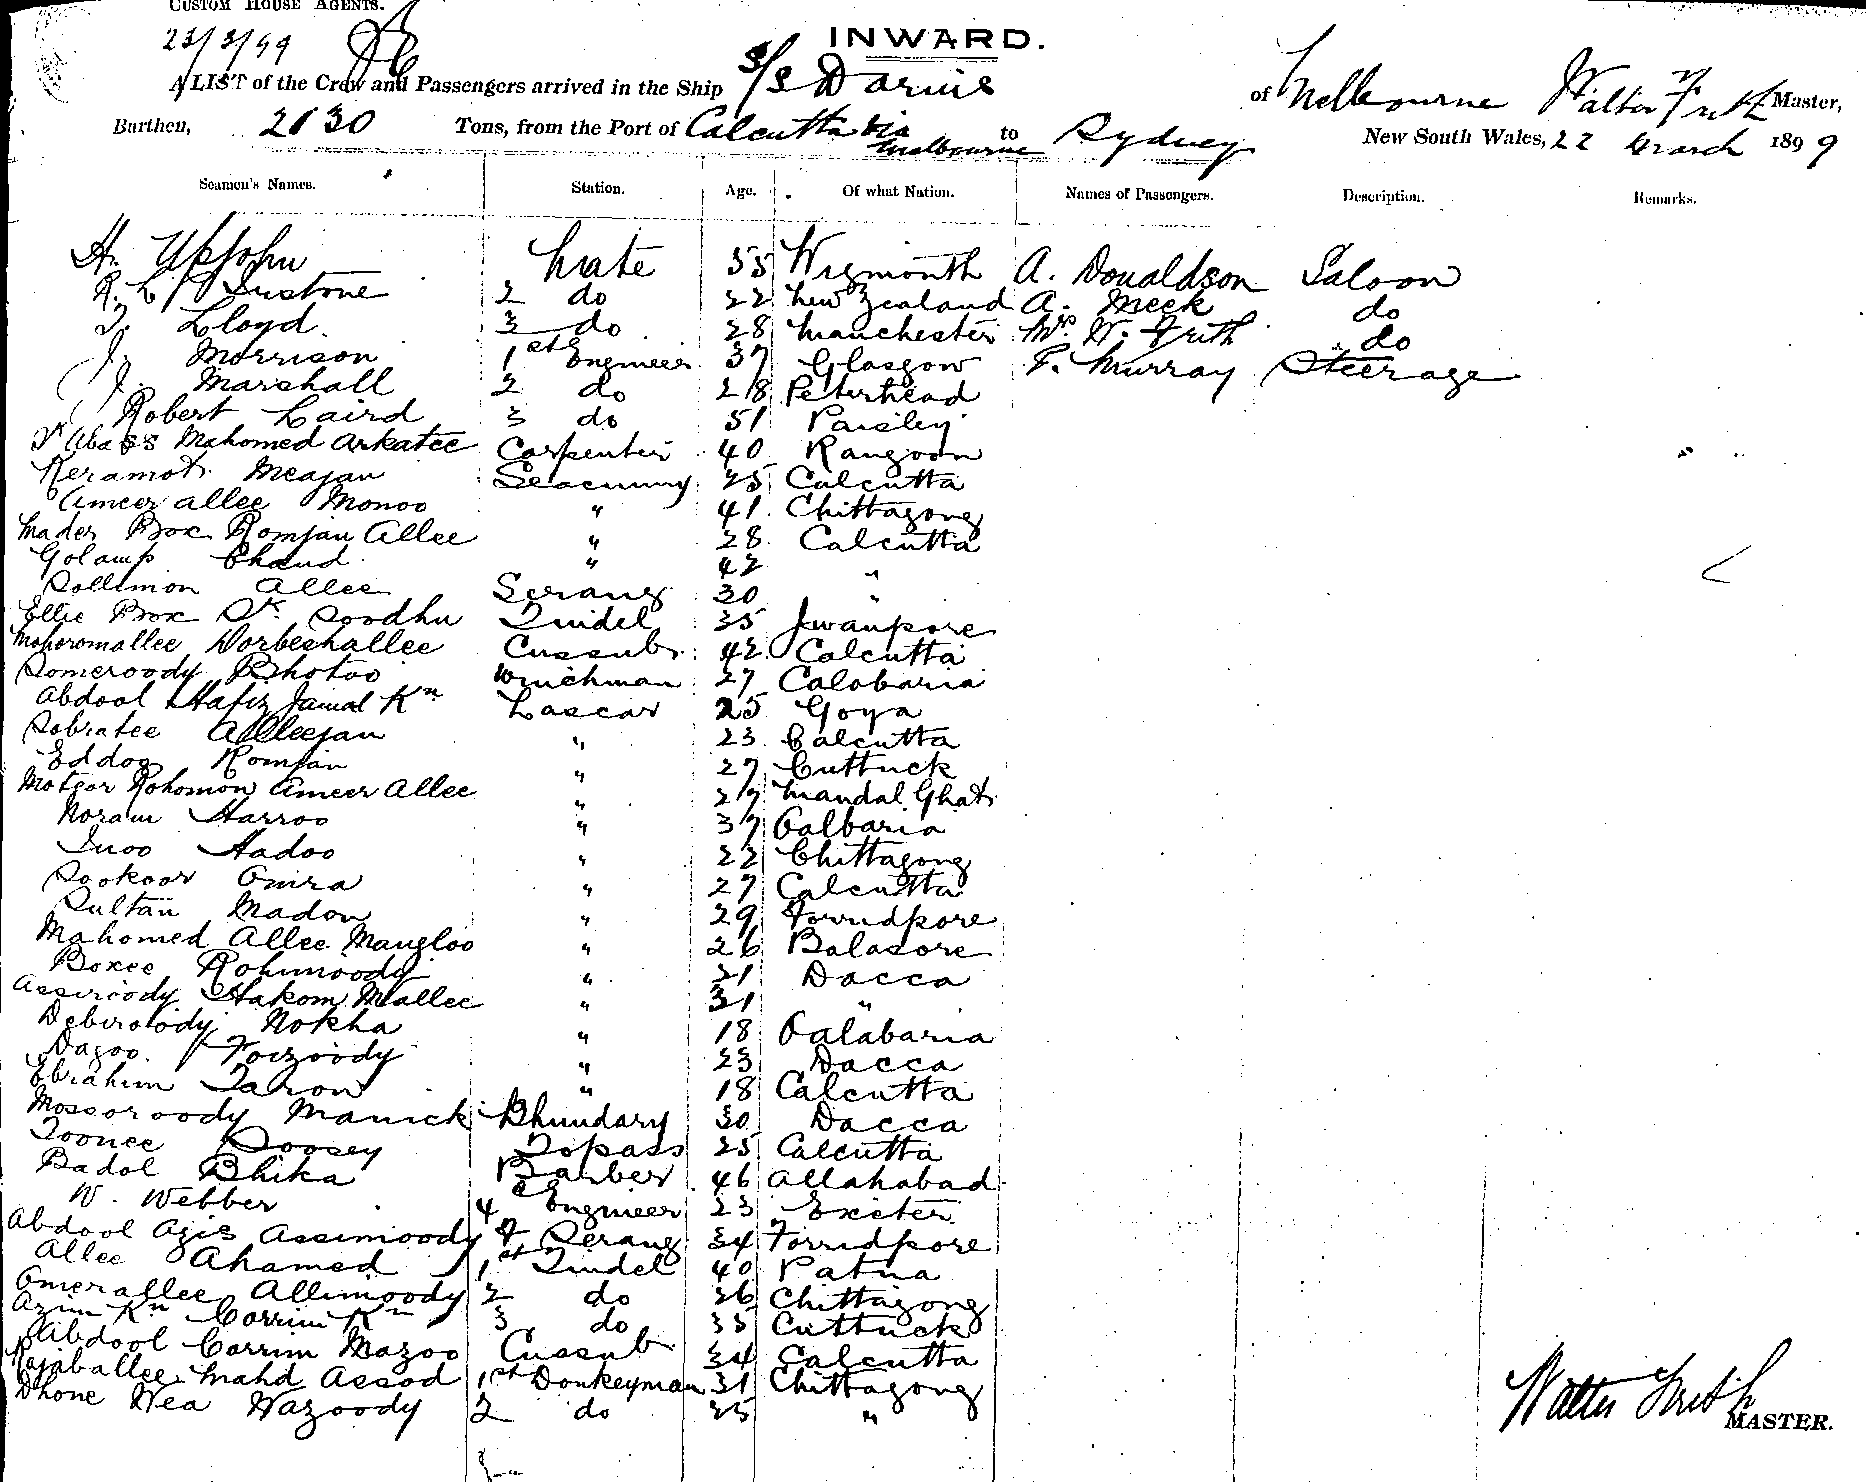 CUSTOM HOUSE AGENTS.
23/3/99
INWARD.
A LIST of the Crew and Passengers arrived in the Ship S/S Darius of Melbourne Walter Frith Master,
Burthen, 2130 Tons, from the Port of Calcutta via Melbourne to Sydney New South Wales, 22 March 1899
Seamen's Names. Station. Age. Of what Nation. Names of Passengers. Description. Remarks.
H. Upjohn Mate 55 Weymouth A. Donaldson Saloon
2 do 22 New Zealand A. Meek do
Lloyd. 3 do 28 Manchester Mrs W. Frith do
J. Morrison 1st Engineer 37 Glasgow F. Murray Steerage
J. Marshall 2 do 28 Peterhead
Robert Laird 3 do 51 Paisley
Sk Abass Mahomed Arkatee Carpenter 40 Rangoon
Keramot Meajan Seacunny 25 Calcutta
Ameer allee Monoo " 41 Chittagong
Mader Box Romjan Allee " 28 Calcutta
Golamp Chand " 42 "
Sollimon Allee Serang 30
Ellie Box Sk. Soodhu Tindel 35 Jwanpore
Moharomallee Dorbeshallee Cussub 42 Calcutta
Someroody Bhotoo Winchman 27 Calobaria
Abdool Hafiz Jamal Kn Lascar 25 Goya
Sobratee Alleejan " 23 Calcutta
Eddoo Romjan " 27 Cuttuck
Moteor Rohomon Ameer Allee " 27 Mandal Ghat
Noram Harroo " 37 Oalbaria
Inoo Hadoo " 22 Chittagong
Sookoor Omra " 27 Calcutta
Sultan Madon " 29 Forridpore
Mahomed Allee Mangloo " 26 Balasore
Boxee Rohimoody " 21 Dacca
Assiroody Hakom Mallee " 31 "
Debiroody Nokha " 18 Oalabaria
Dagoo Foizoody " 23 Dacca
Ebrahim Taron " 18 Calcutta
Mosoroody Manick Bhundary 30 Dacca
Toonee Doosey Topass 25 Calcutta
Badol Bhika Barber 46 Allahabad
W. Webber 4 Engineer 23 Exeter
Abdool Azis Assimoody F Serang 34 Forridpore
Allee Ahamed 1st Tindel 40 Patna
Omerallee Allimoody 2 do 26 Chittagong
Azim Kn Corrim Kn 3 do 35 Cuttuck
Abdool Carrim Mazoo Cussub 34 Calcutta
Rajaballee Mahd Assod 1st Donkeyman 31 Chittagong
Dhone Wazoody 2 do 25 "
Walter Frith
MASTER.